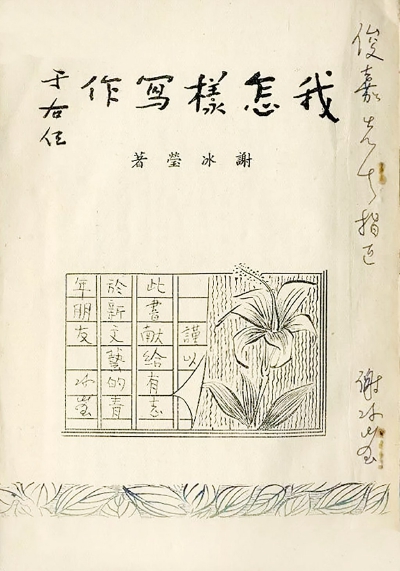 俊嘉先生指正
謝冰瑩
我怎樣寫作
于右任
謝冰瑩著
謹以
此書献給有志
於新文藝的青
年朋友 冰瑩